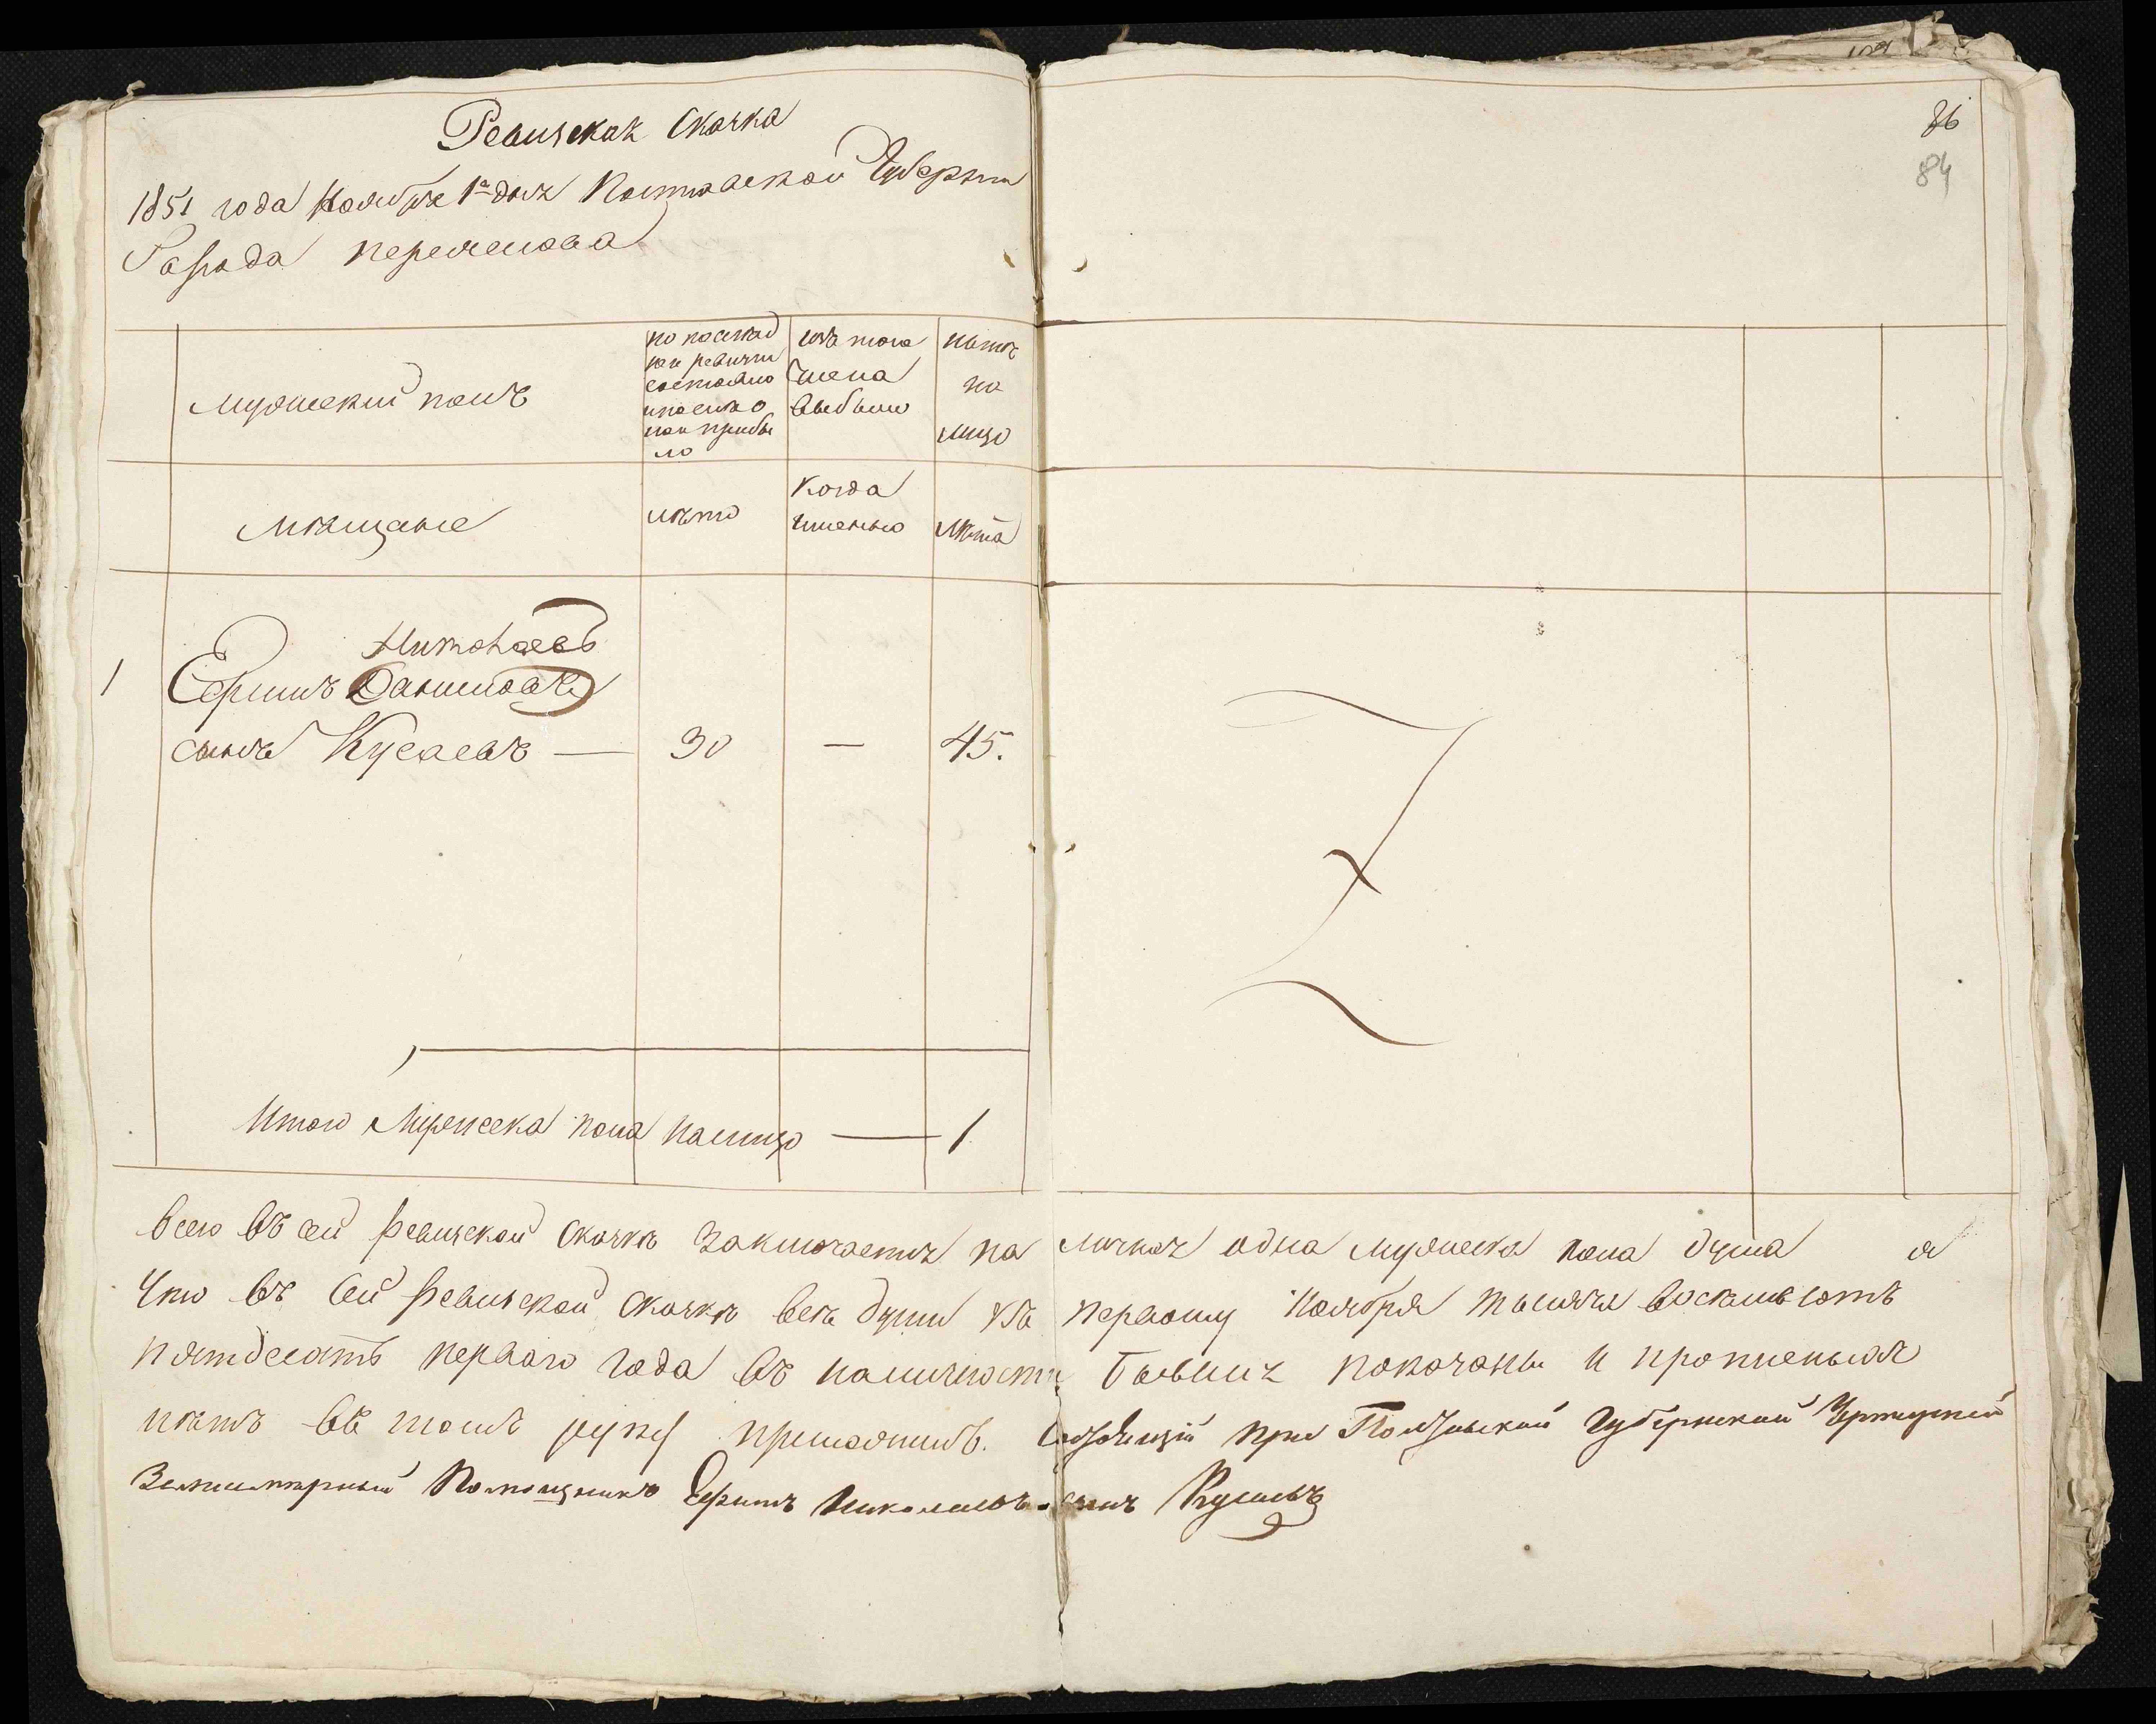 86
84
Ревизская Сказка
1851 года Ноября 1го дня Полтавской Губернiи
Города Переяслова
Мужеский полъ
по послед
ней ревизiи
состояло
и после о
ной прибы
ло
изъ того
числа
выбыло
ныне
на
лицо
Мещане
лето
когда
именно
Лета
Николаевъ
1 Ефимъ Даниловъ
сынъ Кусаевъ — 30 — 45.
Итого Мужеска пола налицо — 1
Всего въ сей ревизской Сказке Заключается на личная одна мужеска пола душа а
Что въ Сей ревизской Сказке все души къ первому Ноября тысяча восемьсотъ
пятдесятъ перваго года въ наличности бывшiя показаны и прописныхъ
нетъ въ томъ руку приложилъ. при Полтавской Губернской Чертежной
Землемерный Помощникъ Ефимъ Николаевъ сынъ Кусаевъ